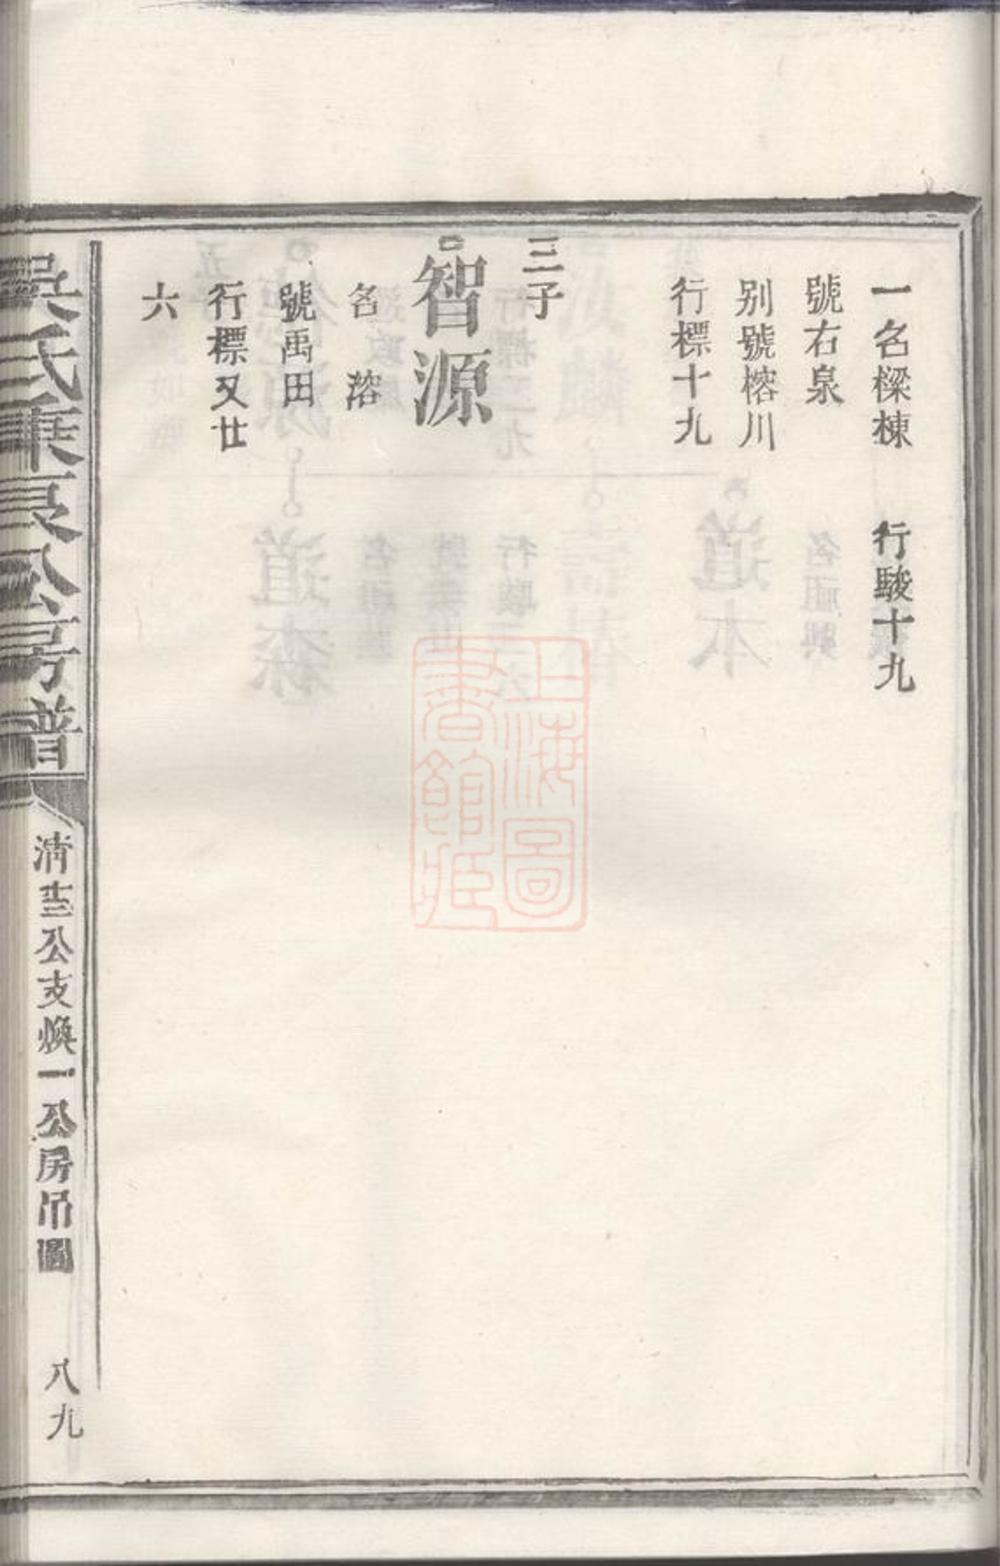 一名樑棟 行駿十九
號右泉
别號榕川
行標十九
三子
智源
名溶
號禹田
行標又廿
六
吳氏秉良公房譜
清十三公支煥一公房吊圖
八九
上海圖
書館藏